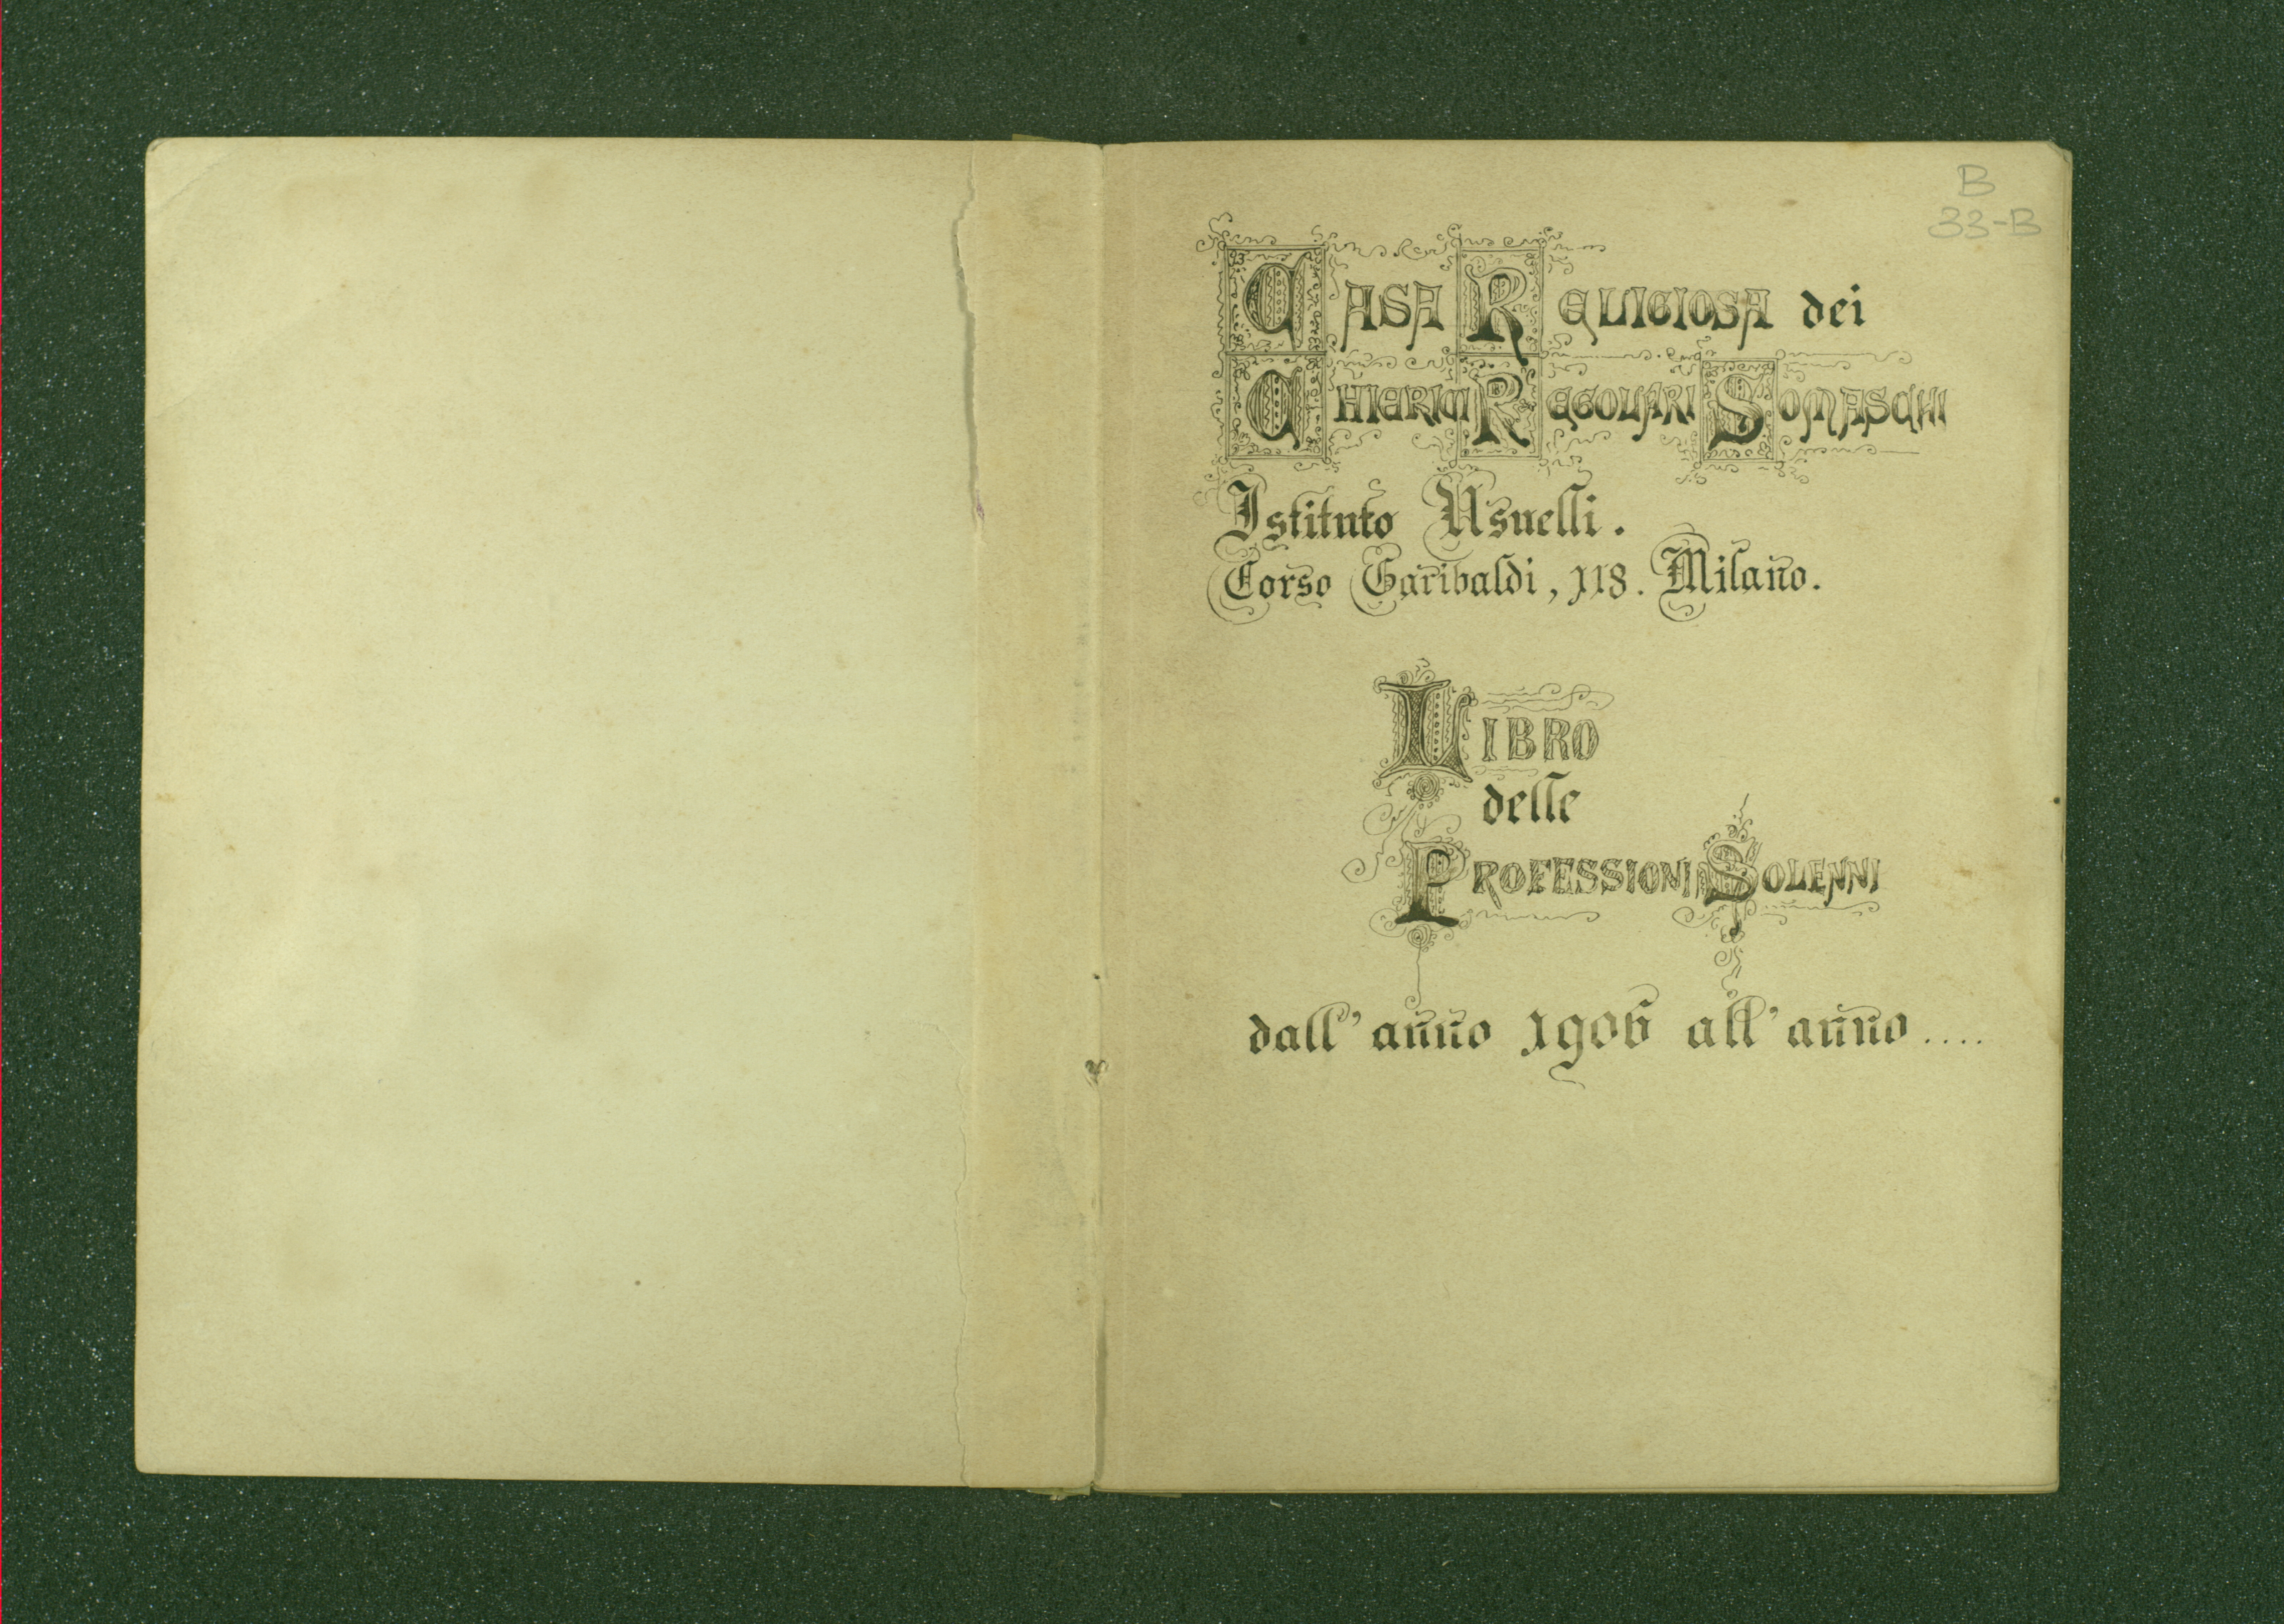 B
33-B
CASA RELIGIOSA dei
CHIERICI REGOLARI SOMASCHI
Istituto Usuelli.
Corso Garibaldi, 118. Milano.
LIBRO
delle
PROFESSIONI SOLENNI
dall'anno 1906 all'anno....